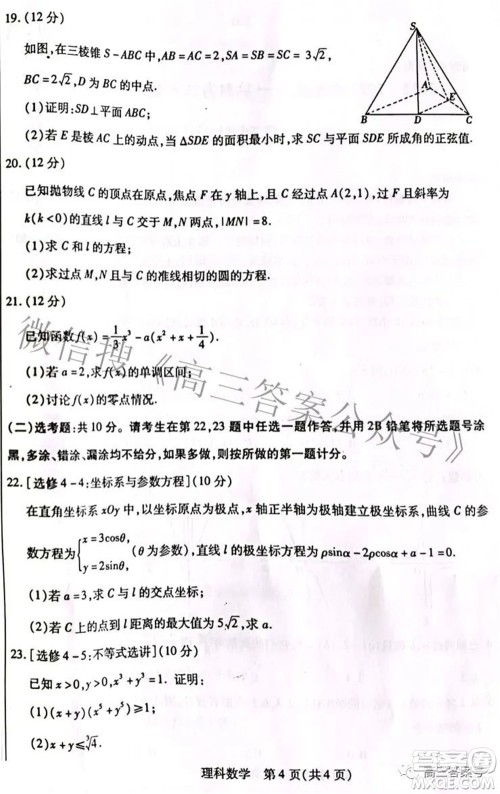 19.(12分)
如图,在三棱锥S-ABC中,AB=AC=2,SA=SB=SC=3√2,
BC=2√2,D为BC的中点.
(1)证明:SD⊥平面ABC;
(2)若E是棱AC上的动点,当△SDE的面积最小时,求SC与平面SDE所成角的正弦值.
S
A
E
B
D
C
20.(12分)
已知抛物线C的顶点在原点,焦点F在y轴上,且C经过点A(2,1),过F且斜率为
k(k<0)的直线l与C交于M,N两点,|MN|=8.
(1)求C和l的方程;
(2)求过点M,N且与C的准线相切的圆的方程.
21.(12分)
已知函数f(x)=1/3x³-a(x²+x+1/4).
(1)若a=2,求f(x)的单调区间;
(2)讨论f(x)的零点情况.
(二)选考题:共10分。请考生在第22,23题中任选一题作答,并用2B铅笔将所选题号涂
黑,多涂、错涂、漏涂均不给分,如果多做,则按所做的第一题计分。
22.[选修4-4:坐标系与参数方程](10分)
在直角坐标系xOy中,以坐标原点为极点,x轴正半轴为极轴建立极坐标系,曲线C的参
数方程为{x=3cosθ, y=sinθ, (θ为参数),直线l的极坐标方程为ρsinα-2ρcosα+a-1=0.
(1)若a=3,求C与l的交点坐标;
(2)若C上的点到l距离的最大值为5√2,求a.
23.[选修4-5:不等式选讲](10分)
已知x>0,y>0,x³+y³=1. 证明:
(1)(x+y)(x⁵+y⁵)≥1;
(2)x+y≤³√4.
理科数学 第4页(共4页)
微信搜《高三答案公众号》
高三答案号
答案圈
MXQE.COM